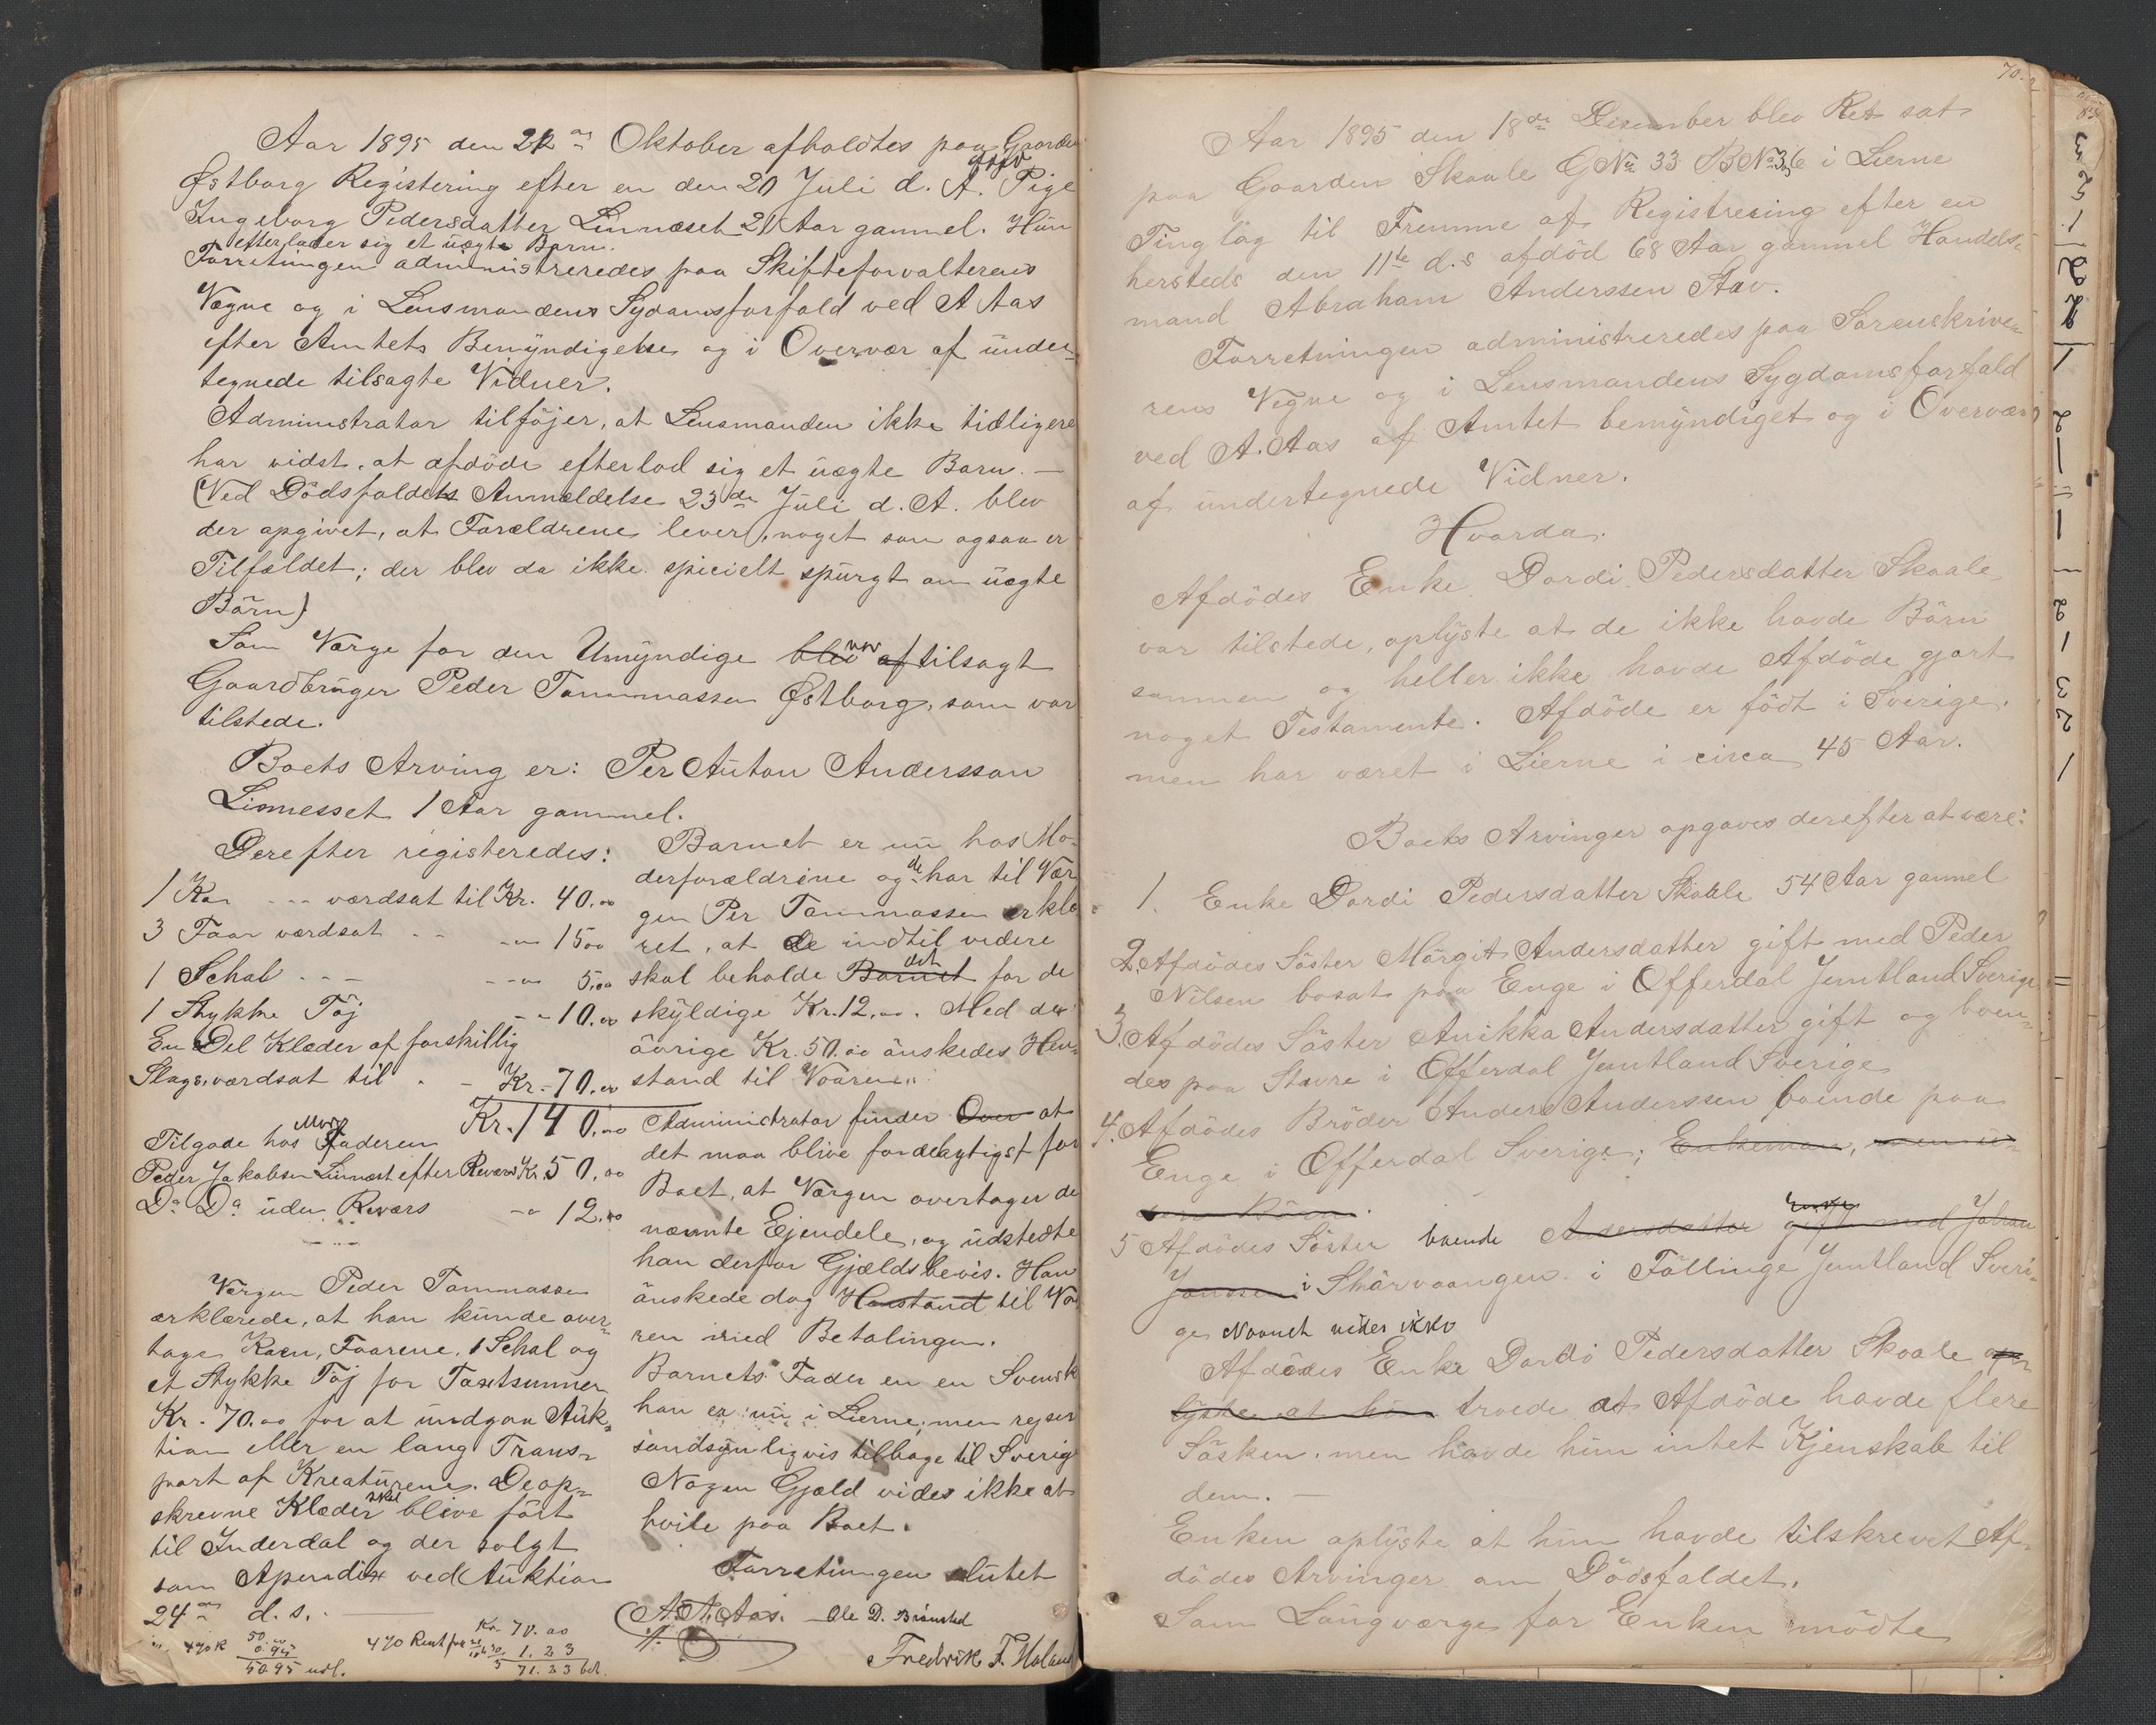 Aar 1895 den 22de Oktober afholdtes paa Gaarden
Østborg Registering efter en den 20 Juli d. A. afdöd Pige
Ingeborg Pedersdatter Linnæset 21 Aar gammel. Hun
efterlader sig et uægte Barn.
Forretningen administreredes paa Skifteforvalterens
Vegne og i Lensmandens Sydomsforfald ved A Aas
efter Amtets Bemyndigelse og i Overvær af under-
tegnede tilsagte Vidner.
Administrator tilföjer, at Lensmanden ikke tidligere
har vidst, at afdöde efterlod sig et uægte Barn. —
(Ved Dödsfaldets Anmeldelse 23de Juli d. A. blev
der opgivet, at Forældrene lever, noget som ogsaa er
Tilfældet; der blev da ikke specielt spurgt om uægte
Börn)
Som Værge for den Umyndige blev var af tilsagt
Gaardbruger Peder Tommassen Østborg, som var
tilstede.
Boets Arving er: Per Anton Andersson
Linnesset 1 Aar gammel.
Derefter registeredes:
1 Ko - - - værdsat til Kr. 40.00
3 Faar værdsat - - - 15 00
1 Schal - - - 5.00
1 Stykke Töj - - 10.00
En Del Klæder af forskillig
Slags, værdsat til - - Kr. - 70.00
Kr. 140.00
Tilgode hos Morfaderen
Peder Jakobsen Linnæset efter Revers Kr. 50.00
Do Do uden Revers - 12.00
Værgen Peder Tommassen
erklærede, at han kunde over-
tage Koen, Faarene, 1 Schal og
et Stykke Töj for Taxtsummen
Kr. 70.00 for at undgaa Auk-
tion eller en lang Trans-
port af Kreaturene. De op-
skrevne Klæder skal blive fört
til Inderdal og der solgt
som Apendix ved Auktion
24de d. s.
50.00
0.95
50.95 udl.
Kr. 70.00
1.23
71.23 bet.
Barnet er nu hos Mo-
derforældrene og de har til Vær
gen Per Tommassen erklæ
ret, at de indtil videre
skal beholde Barnet det for de
skyldige Kr. 12.00. Med de
övrige Kr. 50.00 önskedes Hen-
stand til Vaaren.
Administrator finder Over at
det maa blive fordelagtigst for
Boet, at Værgen overtager de
nævnte Ejendele, og udstedte
han derfor Gjældsbevis. Han
önskede dog Henstand til Vaa
ren med Betalingen.
Barnets Fader en en Svensk
han er nu i Lierne, men rejser
sandsynligvis tilbage til Sverig
Nogen Gjæld vides ikke at
hvile paa Boet.
Forretningen slutet
A. Aas. Ole D. Brönsted
Fredrik F. Holand
70.
Aar 1895 den 18de Desember blev Ret sat
paa Gaarden Skaale GNo 33 BNo 3,6 i Lierne
Tinglag til Fremme af Registrering efter en
hersteds den 11te d.s afdöd 68 Aar gammel Handels-
mand Abraham Anderssen Stav.
Forretningen administreredes paa Sorenskrive-
rens Vegne og i Lensmandens Sygdomsforfald
ved A. Aas af Amtet bemyndiget og i Overvær
af undertegnede Vidner.
Hvorda.
Afdödes Enke Dordi Pedersdatter Skaale
var tilstede, oplyste at de ikke havde Börn
sammen og heller ikke havde Afdöde gjort
noget Testamente. Afdöde er födt i Sverige,
men har været i Lierne i circa 45 Aar.
Boets Arvinger opgaves derefter at være:
1. Enke Dordi Pedersdatter Skaale 54 Aar gammel
2. Afdödes Söster Märgit Andersdatter gift med Peder
Nilsen bosat paa Enge i Offerdal Jemtland Sverige
3. Afdödes Söster Anikka Andersdatter gift og boen-
des paa Stavre i Offerdal Jemtland Sverige
4. Afdödes Bröder Anders Anderssen boende paa
Enge i Offerdal Sverige; Enkeman, men u-
den Börn.
5 Afdödes Söster boende Andersdatter Enke gift med Johan
Jonssen i Skärvaangen i Föllinge Jemtland Sveri-
ge, Navnet vides ikke
Afdödes Enke Dordi Pedersdatter Skaale op-
lyste at hun troede at Afdöde havde flere
Södsken, men havde hun intet Kjenskab til
dem. —
Enken oplyste at hun havde tilskrevet Af-
dödes Arvinger om Dödsfaldet.
Som Laugværge for Enken mödte